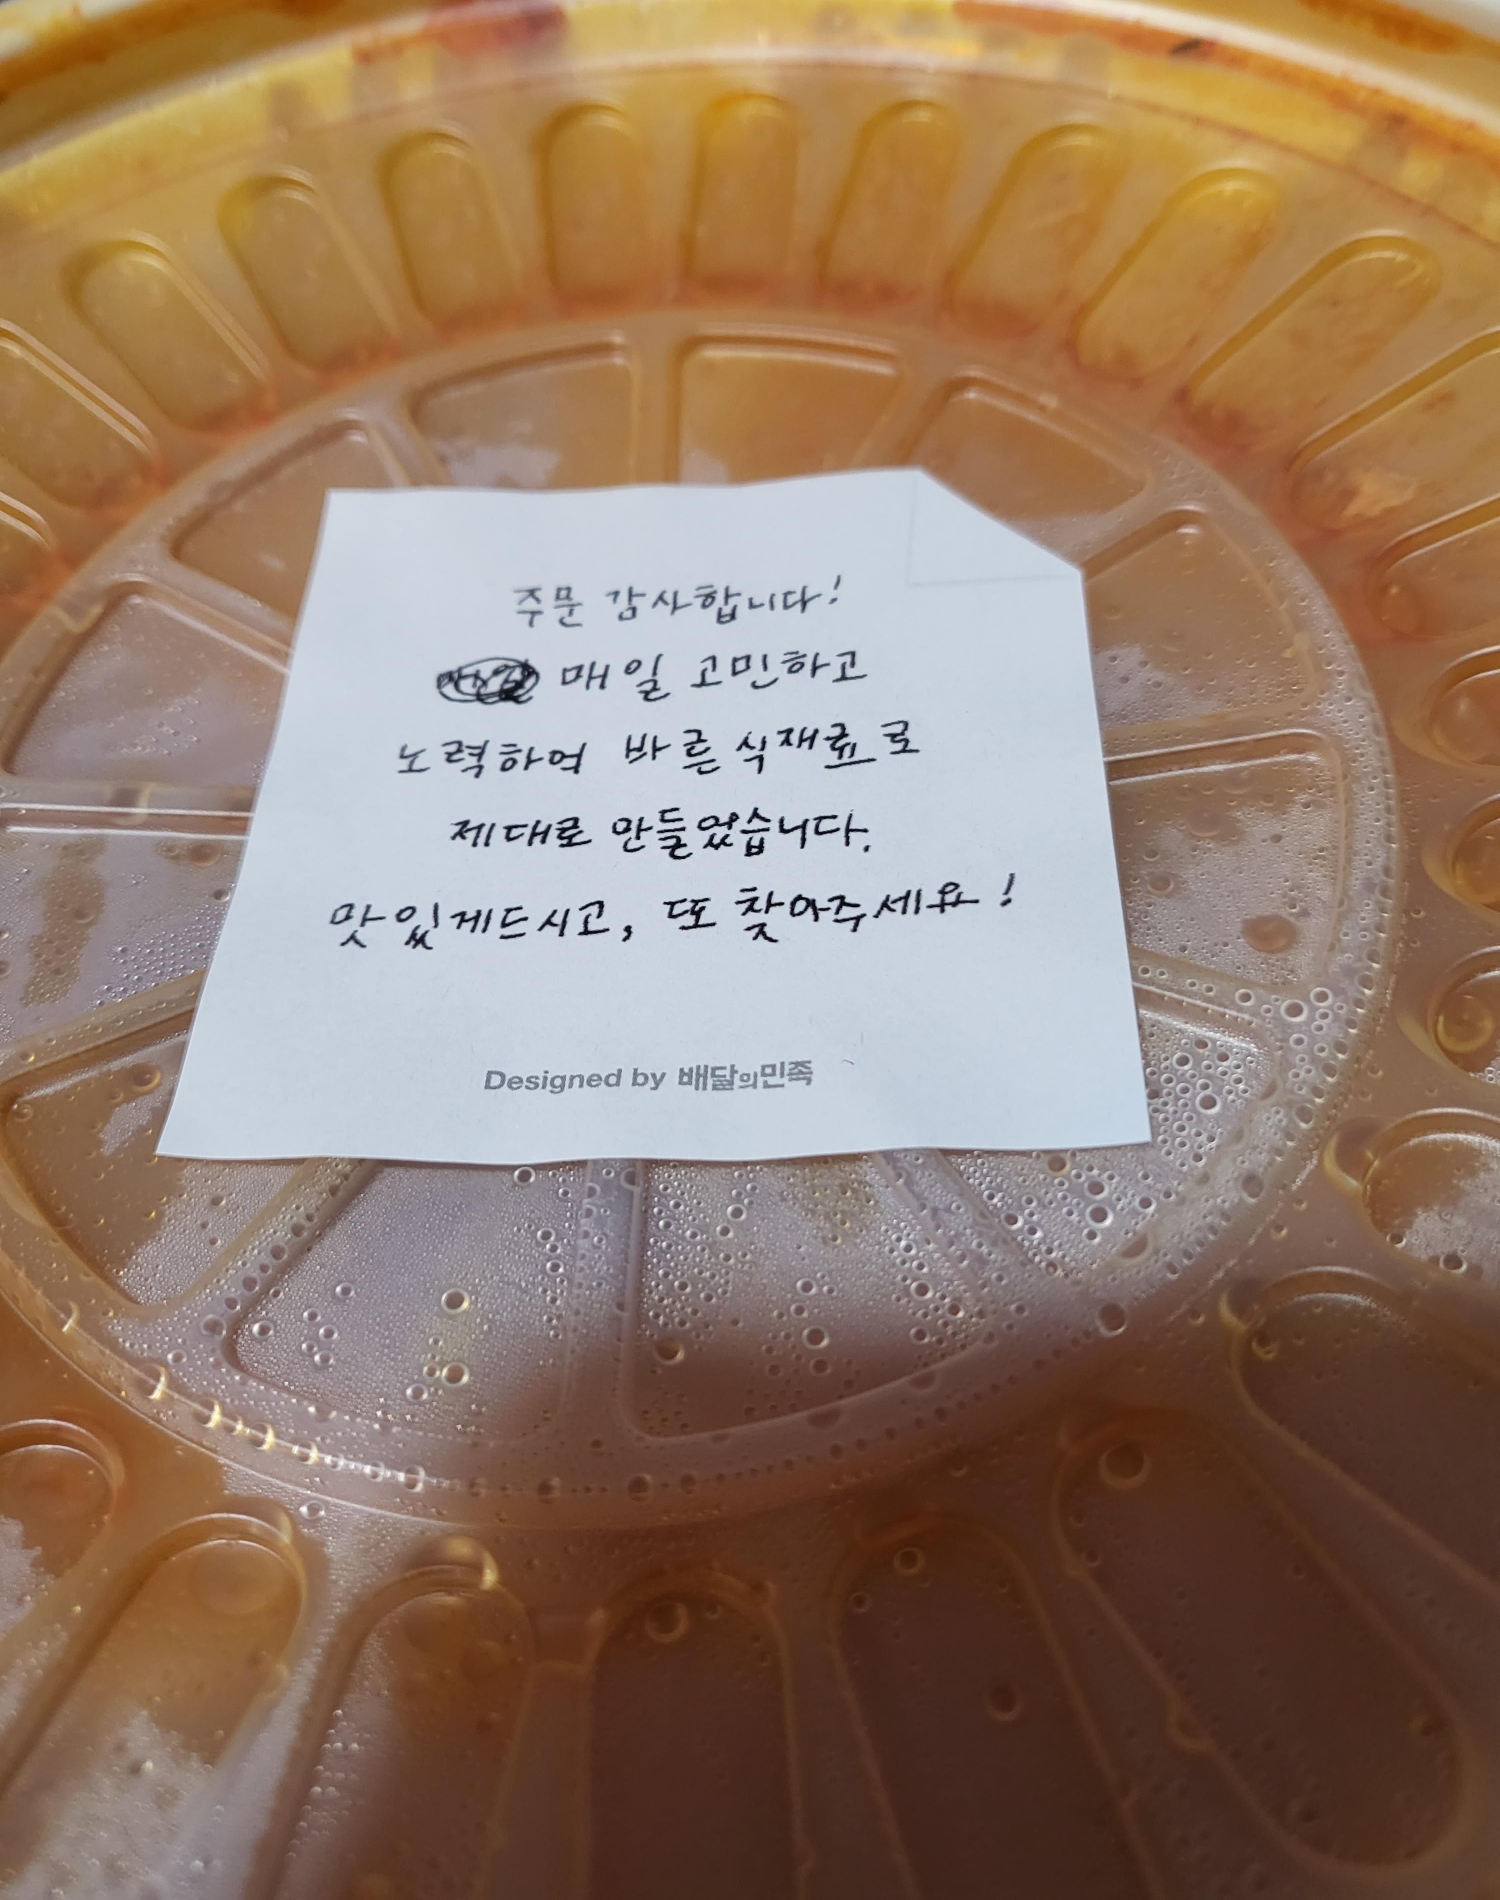 주문 감사합니다!
매일 고민하고
노력하여 바른 식재료로
제대로 만들었습니다.
맛있게드시고, 또 찾아주세요!
Designed by 배달의민족